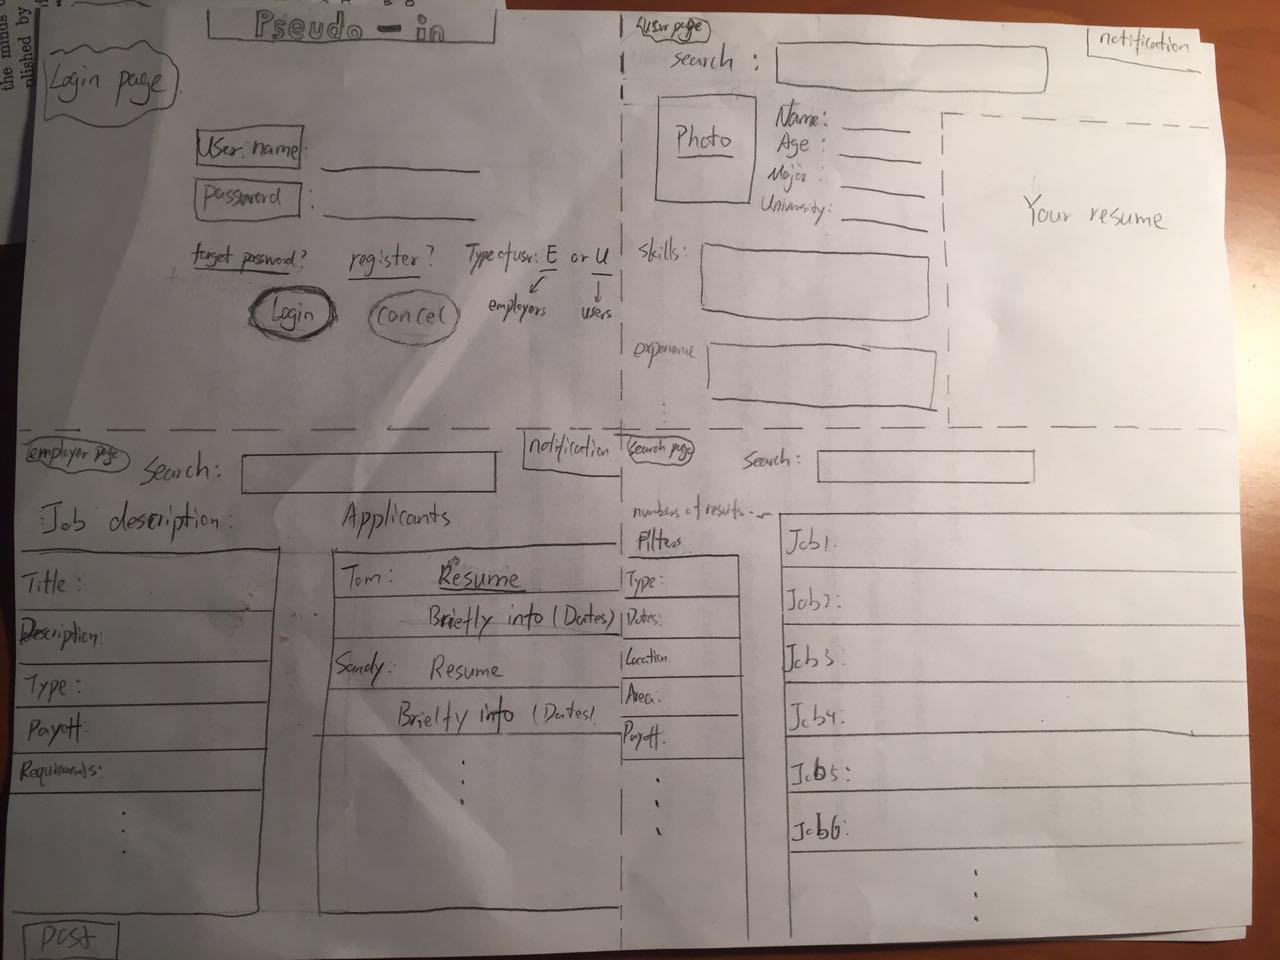 the minds
plished by
Pseudo - in
Login page
User name:
password :
forget password? register? Type of usr: E or U
employers users
Login cancel
User page
notification
search :
Photo
Name:
Age :
Major :
University:
Your resume
skills:
experience
employer page
notification
Search:
Job description: Applicants
Title:
Description:
Type:
Payoff:
Requirements:
Tom: Resume
Briefly into (Dates)
Sandy: Resume
Briefly into (Dates)
post
Search page
Search:
numbers of results
Filters
Type:
Dates:
Location
Area:
Payoff.
Job1.
Job2:
Job3:
Job4:
Job5:
Job6: